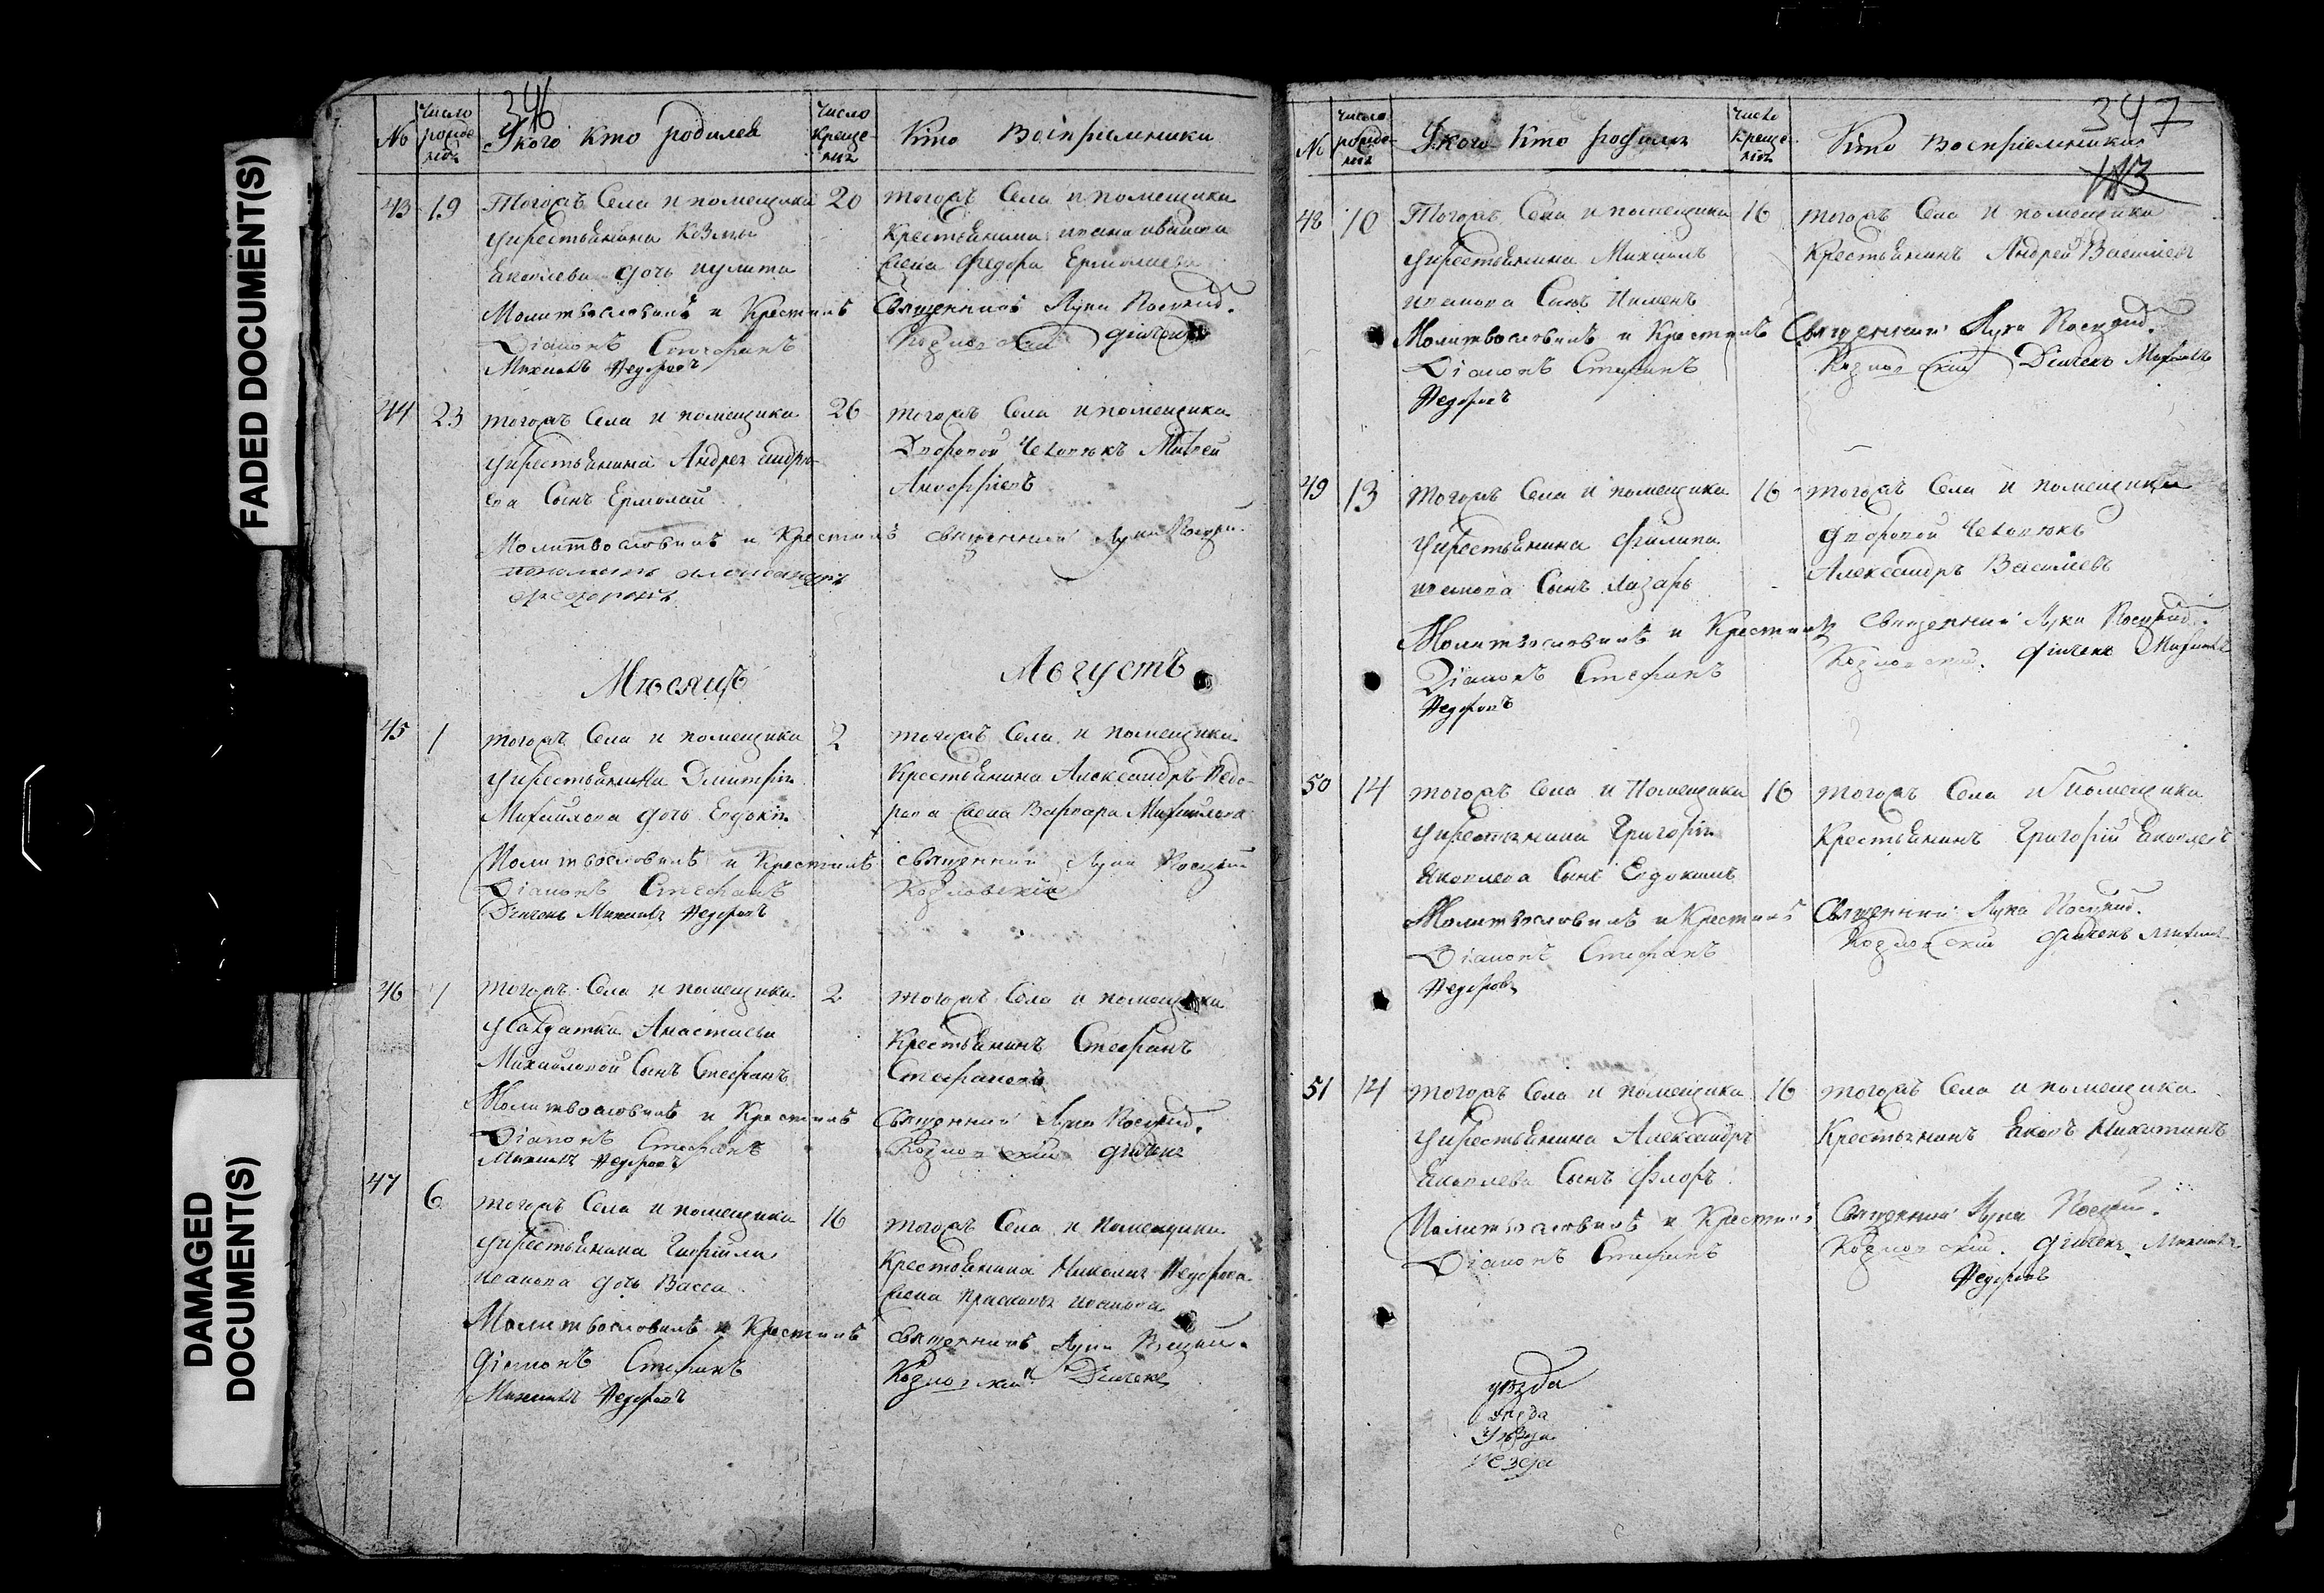 FADED DOCUMENT(S)
DAMAGED
DOCUMENT(S)
346
№
Число рожде-
нія
У кого кто родился
Число Креще-
нія
Кто Воспріемники
43 19 Тогожъ Села и помещика 20 тогожъ Села и помещика
у крестьянина Козмы
Яковлева дочь
Крестьянина ивана иванова
жена Федора Ермолаева
Молитвословилъ и Крестилъ Священникъ Лука
Діаконъ Стефанъ
Козловскій дьячекъ
Михаилъ Федоровъ
44 23 тогожъ Села и помещика 26 тогожъ Села и помещика
у крестьянина Андрея андре-
ева Сынъ Ермолай
Дворовой Человекъ
Молитвословилъ и Крестилъ священникъ Лука
пономарь
Месяцъ Августъ
45 1 тогожъ Села и помещика 2 тогожъ Села и помещика
у крестьянина Дмитрія
Михайлова дочь Евдокія
Крестьянина Александръ Федо-
рова жена Варвара Михайлова
Молитвословилъ и Крестилъ священникъ Лука
Діаконъ Стефанъ
Козловскій
Дьячекъ Михаилъ Федоровъ
46 1 тогожъ Села и помещика 2 тогожъ Села и помещика
у Салдатки Анастасьи
Михайловой Сынъ Стефанъ
Крестьянинъ Стефанъ
Стефановъ
Молитвословилъ и Крестилъ Священникъ Лука
Діаконъ Стефанъ
Козловскій дьячекъ
Михаилъ Федоровъ
47 6 тогожъ Села и помещика 16 тогожъ Села и помещика
у крестьянина Гаврила
иванова дочь Васса
Крестьянина Николая Федорова
жена
Молитвословилъ и Крестилъ священникъ Лука
Діаконъ Стефанъ
Козловскій Дьячекъ
Михаилъ Федоровъ
347
113
№
Число рожде-
нія
У кого кто родился
Число Креще-
нія
Кто Воспріемники
48 10 Тогожъ Села и помещика 16 тогожъ Села и помещика
у крестьянина Михаилъ
иванова Сынъ Пименъ
Крестьянинъ Андрей Васильевъ
Молитвословилъ и Крестилъ Священникъ Лука
Діаконъ Стефанъ
Козловскій Дьячекъ Михаилъ
Федоровъ
49 13 тогожъ Села и помещика 16 тогожъ Села и помещика
у крестьянина Филипа
иванова Сынъ Лазарь
дворовой Человекъ
Александръ Васильевъ
Молитвословилъ и Крестилъ Священникъ Лука
Діаконъ Стефанъ
Козловскій дьячекъ Михаилъ
Федоровъ
50 14 тогожъ Села и Помещика 16 тогожъ Села и Помещика
у крестьянина Григорія
Яковлева Сынъ Евдокимъ
Крестьянинъ Григорій Яковлевъ
Молитвословилъ и Крестилъ Священникъ Лука
Діаконъ Стефанъ
Козловскій дьячекъ Михаилъ
Федоровъ
51 14 тогожъ Села и помещика 16 тогожъ Села и помещика
у крестьянина Александра
Яковлева Сынъ Флоръ
Крестьянинъ Яковъ Никитинъ
Молитвословилъ и Крестилъ Священникъ Лука
Діаконъ Стефанъ
Козловскій дьячекъ Михаилъ
Федоровъ
уезда